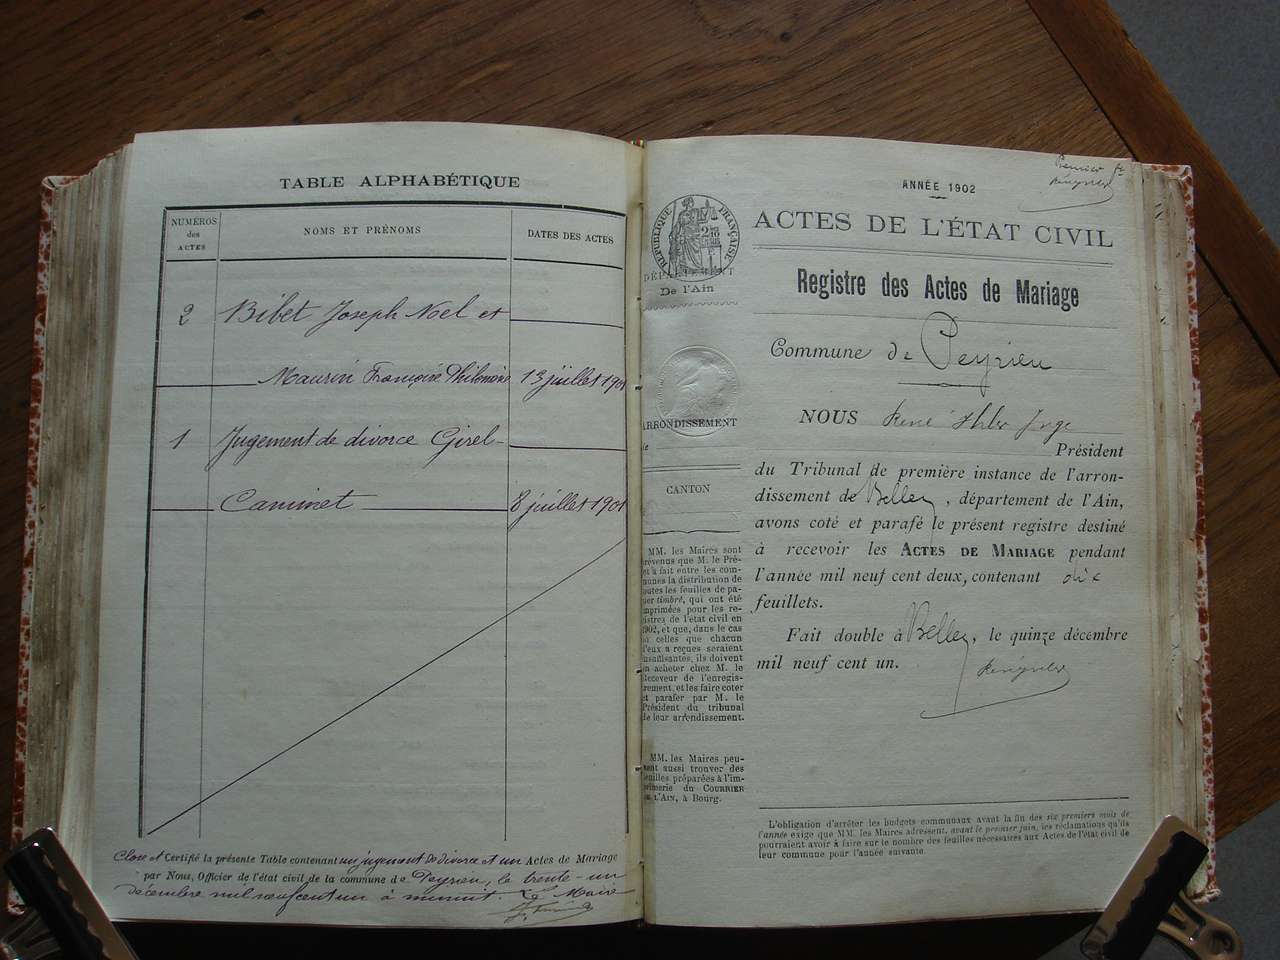 TABLE ALPHABÉTIQUE
NUMÉROS
des
ACTES
NOMS ET PRÉNOMS
DATES DES ACTES
2 Bibet Joseph Noel et
Maurin Françoise Philomène 13 juillet 1901
1 Jugement de divorce Girel-
Caminet 8 juillet 1901
Clos et Certifié la présente Table contenant un jugement de divorce et un Actes de Mariage
par Nous, Officier de l'état civil de la commune de Peyrieu, le trente-un
décembre mil neuf cent un à minuit. Le Maire
Premier
ANNÉE 1902
RÉPUBLIQUE FRANÇAISE
ACTES DE L'ÉTAT CIVIL
DÉPARTEMENT
De l'Ain
Registre des Actes de Mariage
Commune de Peyrieu
ARRONDISSEMENT
CANTON
NOUS René Juge
Président
du Tribunal de première instance de l'arron-
dissement de Belley, département de l'Ain,
avons coté et parafé le présent registre destiné
à recevoir les ACTES DE MARIAGE pendant
l'année mil neuf cent deux, contenant dix
feuillets.
Fait double à Belley, le quinze décembre
mil neuf cent un.
MM. les Maires sont
prévenus que M. le Pré-
fet a fait entre les com-
munes la distribution de
toutes les feuilles de pa-
pier timbré, qui ont été
imprimées pour les re-
gistres de l'état civil en
1902, et que, dans le cas
où celles que chacun
d'eux a reçues seraient
insuffisantes, ils doivent
en acheter chez M. le
Receveur de l'enregis-
trement, et les faire coter
et parafer par M. le
Président du tribunal
de leur arrondissement.
MM. les Maires peu-
vent aussi trouver des
feuilles préparées à l'im-
primerie du COURRIER
DE L'AIN, à Bourg.
L'obligation d'arrêter les budgets communaux avant la fin des six premiers mois de
l'année exige que MM. les Maires adressent, avant le premier juin, les réclamations qu'ils
pourraient avoir à faire sur le nombre des feuilles nécessaires aux Actes de l'état civil de
leur commune pour l'année suivante